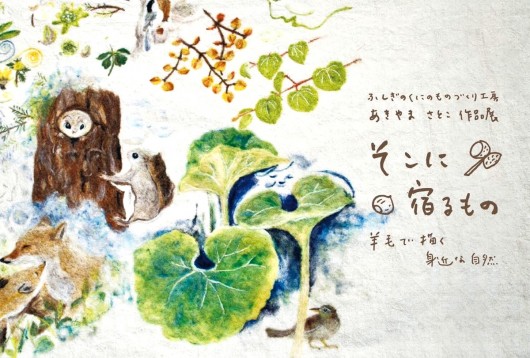 ふしぎのくにのものづくり工房
あきやま さとこ 作品展
そこに
宿るもの
羊毛で描く
身近な自然